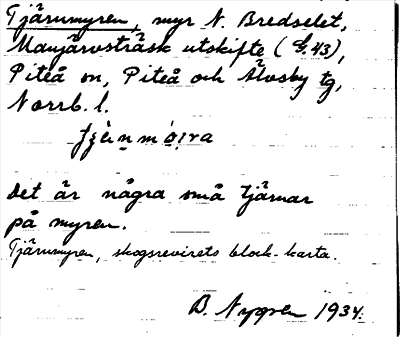 Tjärnmyren, myr N. Bredselet,
Manjärvsträsk utskifte (G. 43),
Piteå sn, Piteå och Älvsby tg,
Norrb. l.
Det är några små tjärnar
på myren.
Tjärnmyren, skogsrevirets block-karta.
B. Nygren 1934.